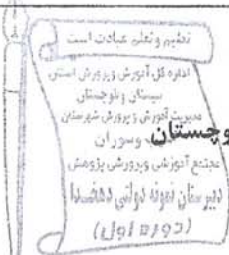 تعلیم و تعلم عبادت است
اداره کل آموزش و پرورش استان
سیستان و بلوچستان
مدیریت آموزش و پرورش شهرستان
وچستان
سیب و سوران
مجتمع آموزشی و پرورشی پژوهش
دبیرستان نمونه دولتی دهخدا
(دوره اول)